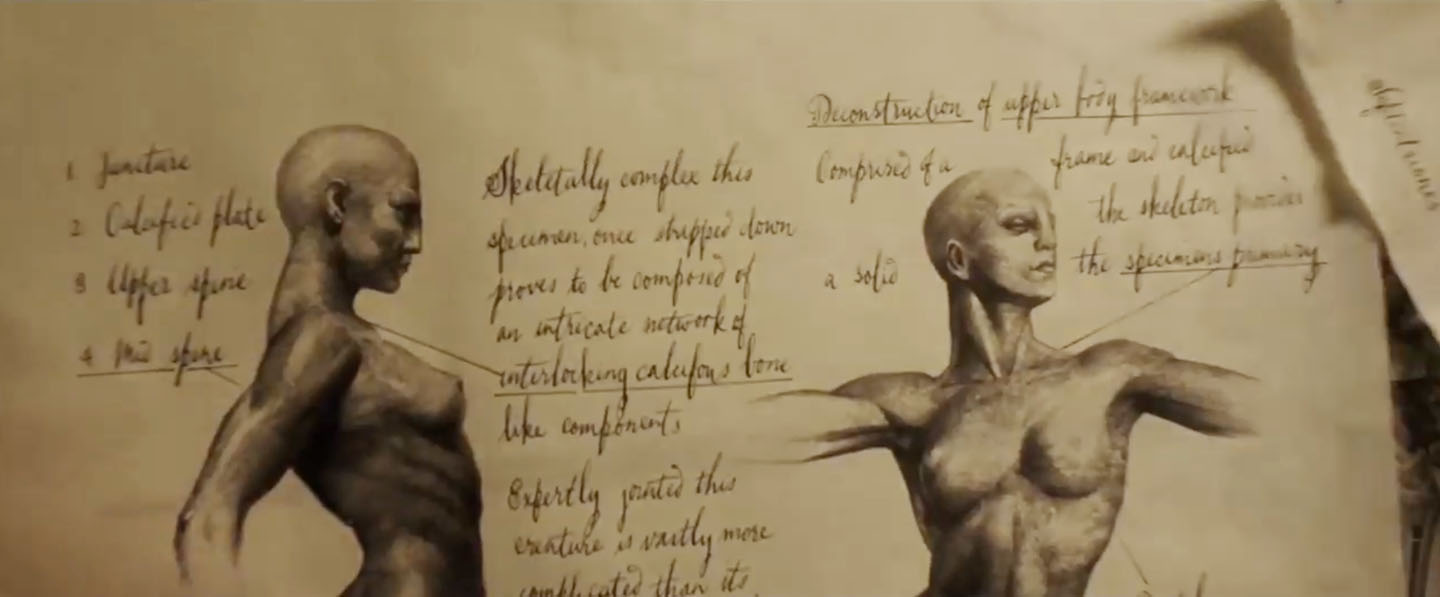 1 Juncture
2 Calcific plate
3 Upper spine
4 Mid spine
Skeletally complex this
specimen, once stripped down
proves to be composed of
an intricate network of
interlocking calcifous bone
like components
Expertly jointed this
creature is vastly more
complicated than its
Deconstruction of upper body framework
Comprised of a frame and calcified
the skeleton provides
a solid the specimens primary